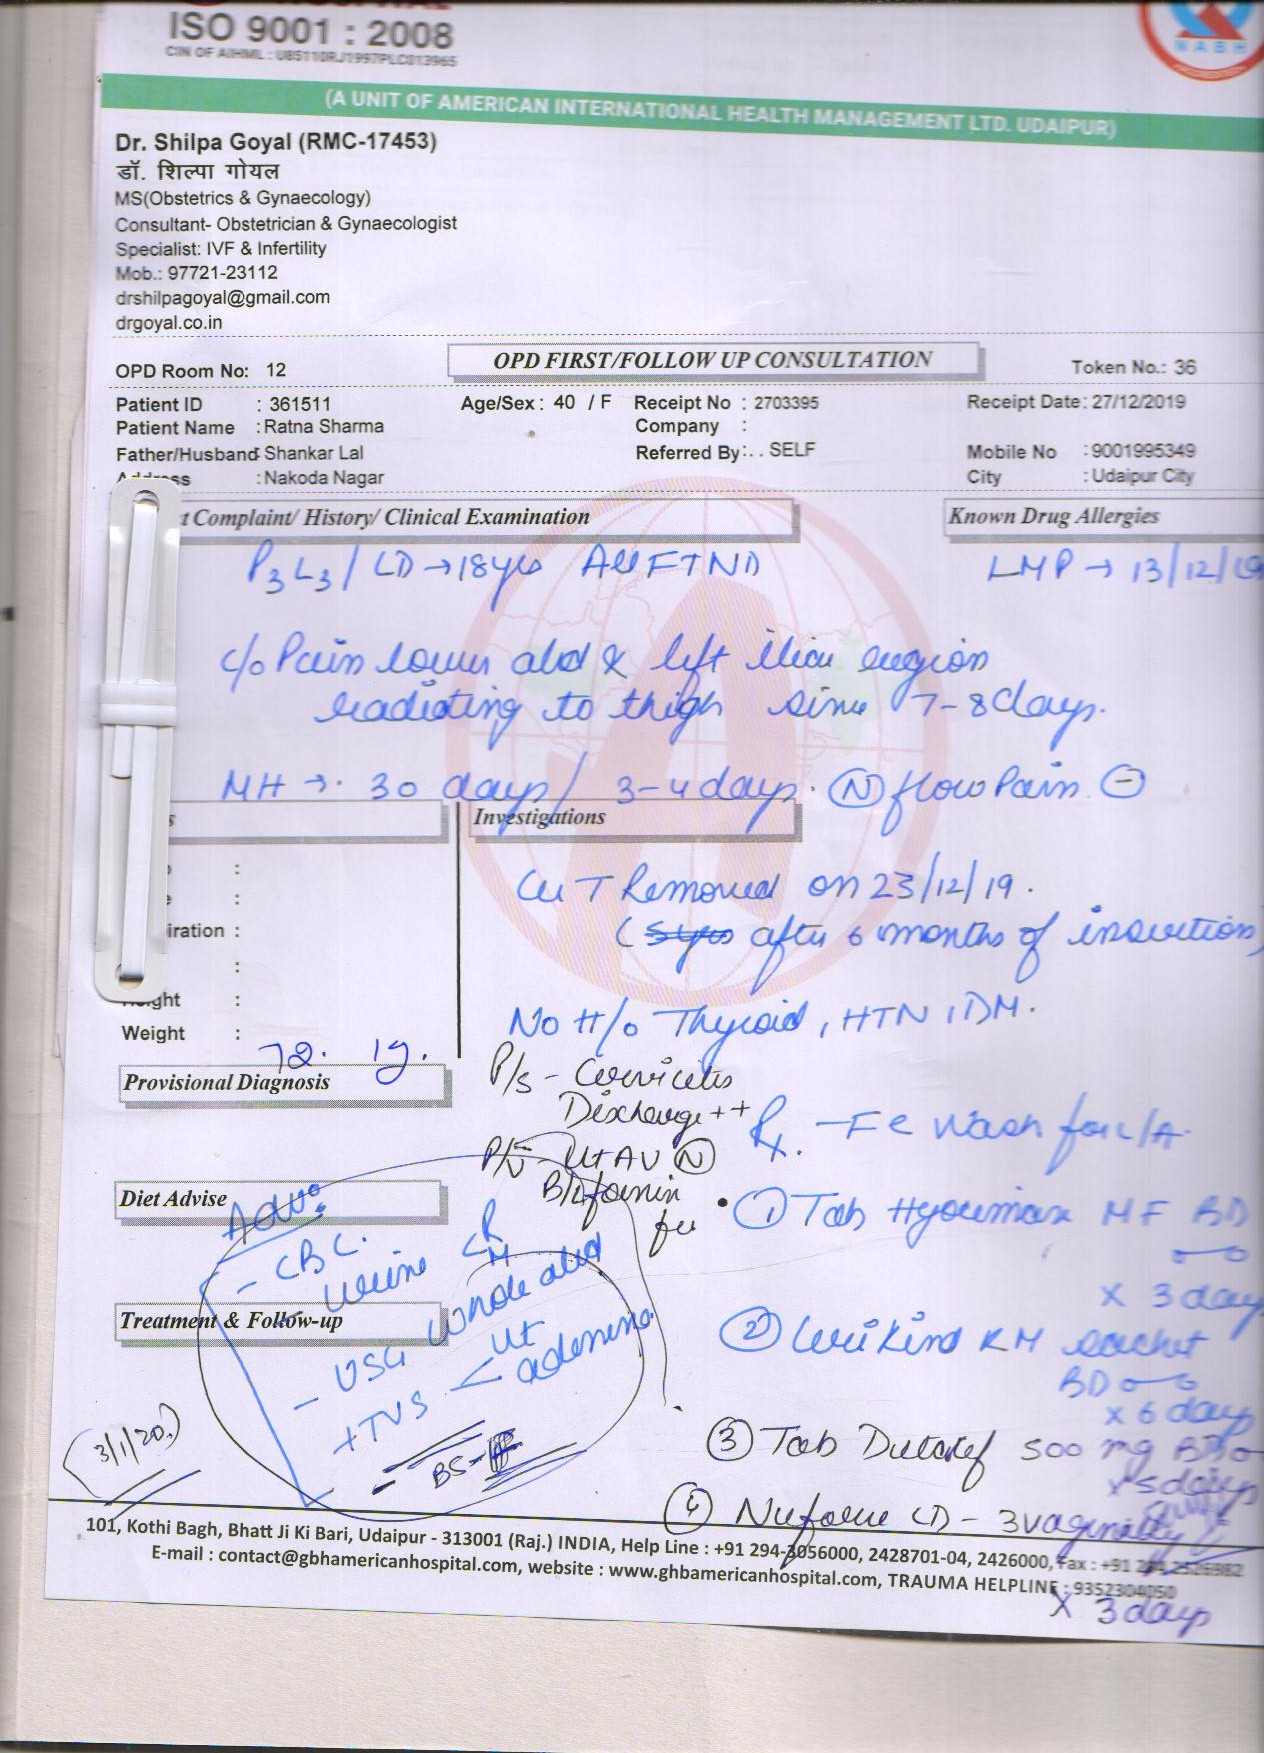 ISO 9001 : 2008
CIN OF AIHML : U85110RJ1997PLC013965
NABH
(A UNIT OF AMERICAN INTERNATIONAL HEALTH MANAGEMENT LTD. UDAIPUR)
Dr. Shilpa Goyal (RMC-17453)
डॉ. शिल्पा गोयल
MS(Obstetrics & Gynaecology)
Consultant- Obstetrician & Gynaecologist
Specialist: IVF & Infertility
Mob.: 97721-23112
drshilpagoyal@gmail.com
drgoyal.co.in
OPD Room No: 12 OPD FIRST/FOLLOW UP CONSULTATION Token No.: 36
Patient ID : 361511 Age/Sex : 40 / F Receipt No : 2703395 Receipt Date: 27/12/2019
Patient Name : Ratna Sharma Company :
Father/Husband: Shankar Lal Referred By: . . SELF Mobile No : 9001995349
Address : Nakoda Nagar City : Udaipur City
t Complaint/ History/ Clinical Examination Known Drug Allergies
P3L3 / LD → 18yrs All FTND LMP → 13/12/19
c/o Pain lower abd & left iliac region
radiating to thigh since 7-8 days.
MH → 30 days / 3-4 days. (N) flow Pain (-)
Investigations
CuT Removed on 23/12/19.
(5yrs after 6 months of insertion)
iration :
Height :
No H/o Thyroid, HTN, DM.
Weight :
72.
Provisional Diagnosis
P/s - Cervicitis
Discharge ++
Rx. - Wash for L/A
P/V - Ut AV (N)
B/L fornix
Diet Advise
Adv:
- CBC.
- Urine R
M
- USG Whole abd
+ TVS < Ut
adenexa
Treatment & Follow-up
(3/1/20.)
BS-F
1) Tab MF BD
x 3 days
2) KM sachet
BD
x 6 days
3) Tab 500 mg BD
x 5 days
4) CD - 3 vaginally
x 3 days
101, Kothi Bagh, Bhatt Ji Ki Bari, Udaipur - 313001 (Raj.) INDIA, Help Line : +91 294-3056000, 2428701-04, 2426000, Fax : +91 294
E-mail : contact@gbhamericanhospital.com, website : www.ghbamericanhospital.com, TRAUMA HELPLINE : 9352304050